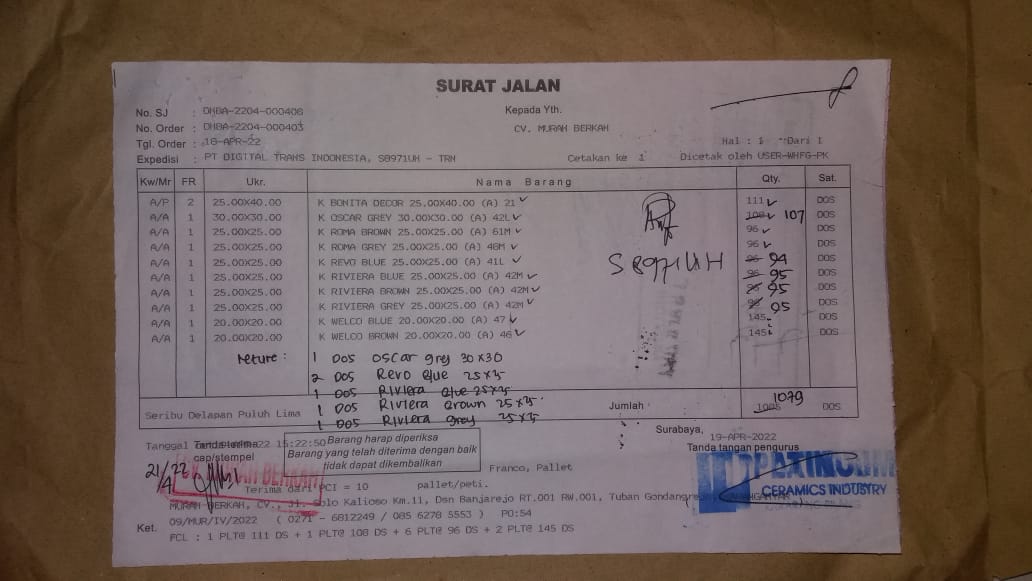 SURAT JALAN
No. SJ : DHBA-2204-000406
Kepada Yth.
No. Order : DHBA-2204-000403
CV. MURAH BERKAH
Tgl. Order : 18-APR-22
Hal : 1 Dari 1
Expedisi : PT DIGITAL TRANS INDONESIA, S8971UH - TRN
Cetakan ke 1
Dicetak oleh USER-WHFG-PK
Kw/Mr FR Ukr. Nama Barang Qty. Sat.
A/P 2 25.00X40.00 K BONITA DECOR 25.00X40.00 (A) 21 111 DOS
A/A 1 30.00X30.00 K OSCAR GREY 30.00X30.00 (A) 42L 108 107 DOS
A/A 1 25.00X25.00 K ROMA BROWN 25.00X25.00 (A) 61M 96 DOS
A/A 1 25.00X25.00 K ROMA GREY 25.00X25.00 (A) 48M 96 DOS
A/A 1 25.00X25.00 K REVO BLUE 25.00X25.00 (A) 41L 96 94 DOS
A/A 1 25.00X25.00 K RIVIERA BLUE 25.00X25.00 (A) 42M 96 95 DOS
A/A 1 25.00X25.00 K RIVIERA BROWN 25.00X25.00 (A) 42M 96 95 DOS
A/A 1 25.00X25.00 K RIVIERA GREY 25.00X25.00 (A) 42M 96 95 DOS
A/A 1 20.00X20.00 K WELCO BLUE 20.00X20.00 (A) 47 145 DOS
A/A 1 20.00X20.00 K WELCO BROWN 20.00X20.00 (A) 46 145 DOS
S 8971 UH
reture : 1 DOS OSCAR grey 30x30
2 DOS Revo Blue 25x25
1 DOS Riviera Blue 25x25
1 DOS Riviera Brown 25x25
1 DOS Riviera grey 25x25
Seribu Delapan Puluh Lima
Jumlah 1085 1079 DOS
Surabaya,
19-APR-2022
Tanggal 22 15:22:50
Tanda terima
cap/stempel
Barang harap diperiksa
Barang yang telah diterima dengan baik
tidak dapat dikembalikan
Tanda tangan pengurus
21/4 22
BERKAH
PLATINUM
CERAMICS INDUSTRY
Franco, Pallet
Terima dari PCI = 10 pallet/peti.
MURAH BERKAH, CV., Jl. Solo Kalioso Km.11, Dsn Banjarejo RT.001 RW.001, Tuban Gondangrejo
09/MUR/IV/2022 ( 0271 - 6812249 / 085 6278 5553 ) PO:54
Ket.
FCL : 1 PLT@ 111 DS + 1 PLT@ 108 DS + 6 PLT@ 96 DS + 2 PLT@ 145 DS